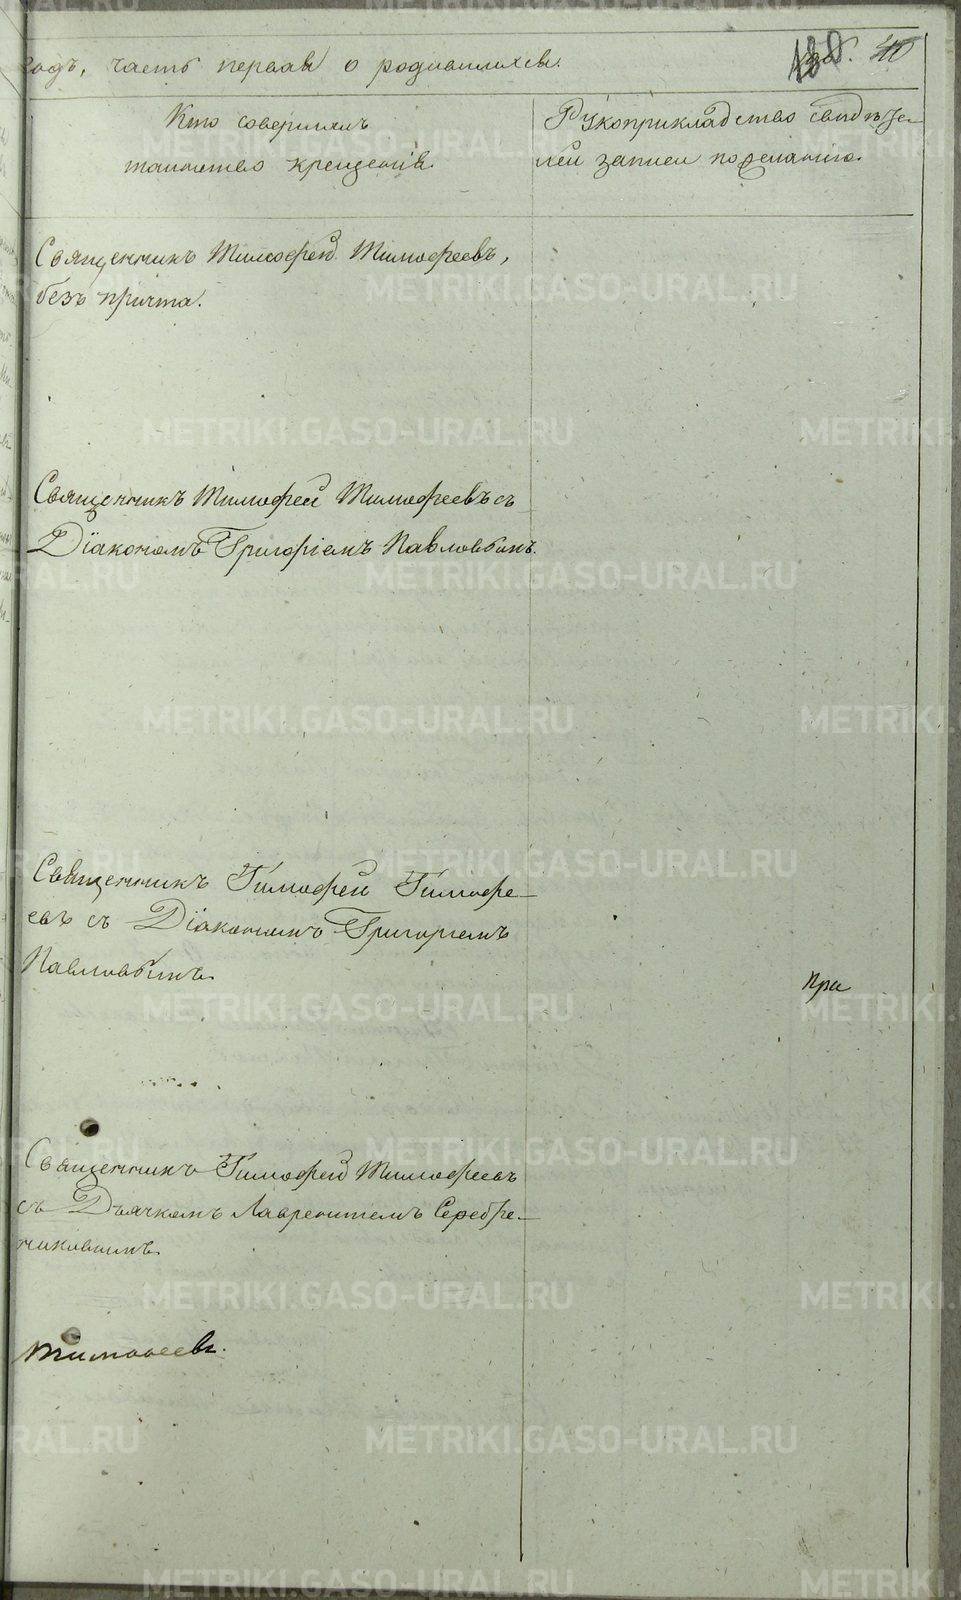 годъ, часть первая о родившихся.
Кто совершалъ
таинство крещенія.
Рукоприкладство свидѣте-
лей записи по желанію.
Священникъ Тимофей Тимофеевъ,
безъ причта.
Священникъ Тимофей Тимофеевъ съ
Діакономъ Григоріемъ Павловымъ.
Священникъ Тимофей Тимофе-
евъ съ Діакономъ Григоріемъ
Павловымъ.
При
Священникъ Тимофей Тимофеевъ
съ Дьячкомъ Лаврентіемъ Серебре-
никовымъ.
Тимофеевъ.
METRIKI.GASO-URAL.RU